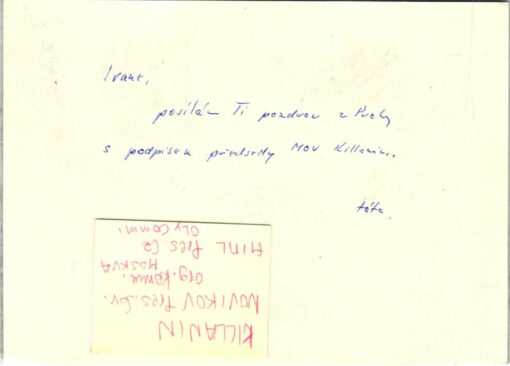 Ivane,
posílám Ti pozdrav z Prahy
s podpisem předsedy MOV Killanina.
táta.
KILLANIN
NOVIKOV Pres.
Org. Komm.
MOSKVA
HIML Pres. CZ
Oly Commi